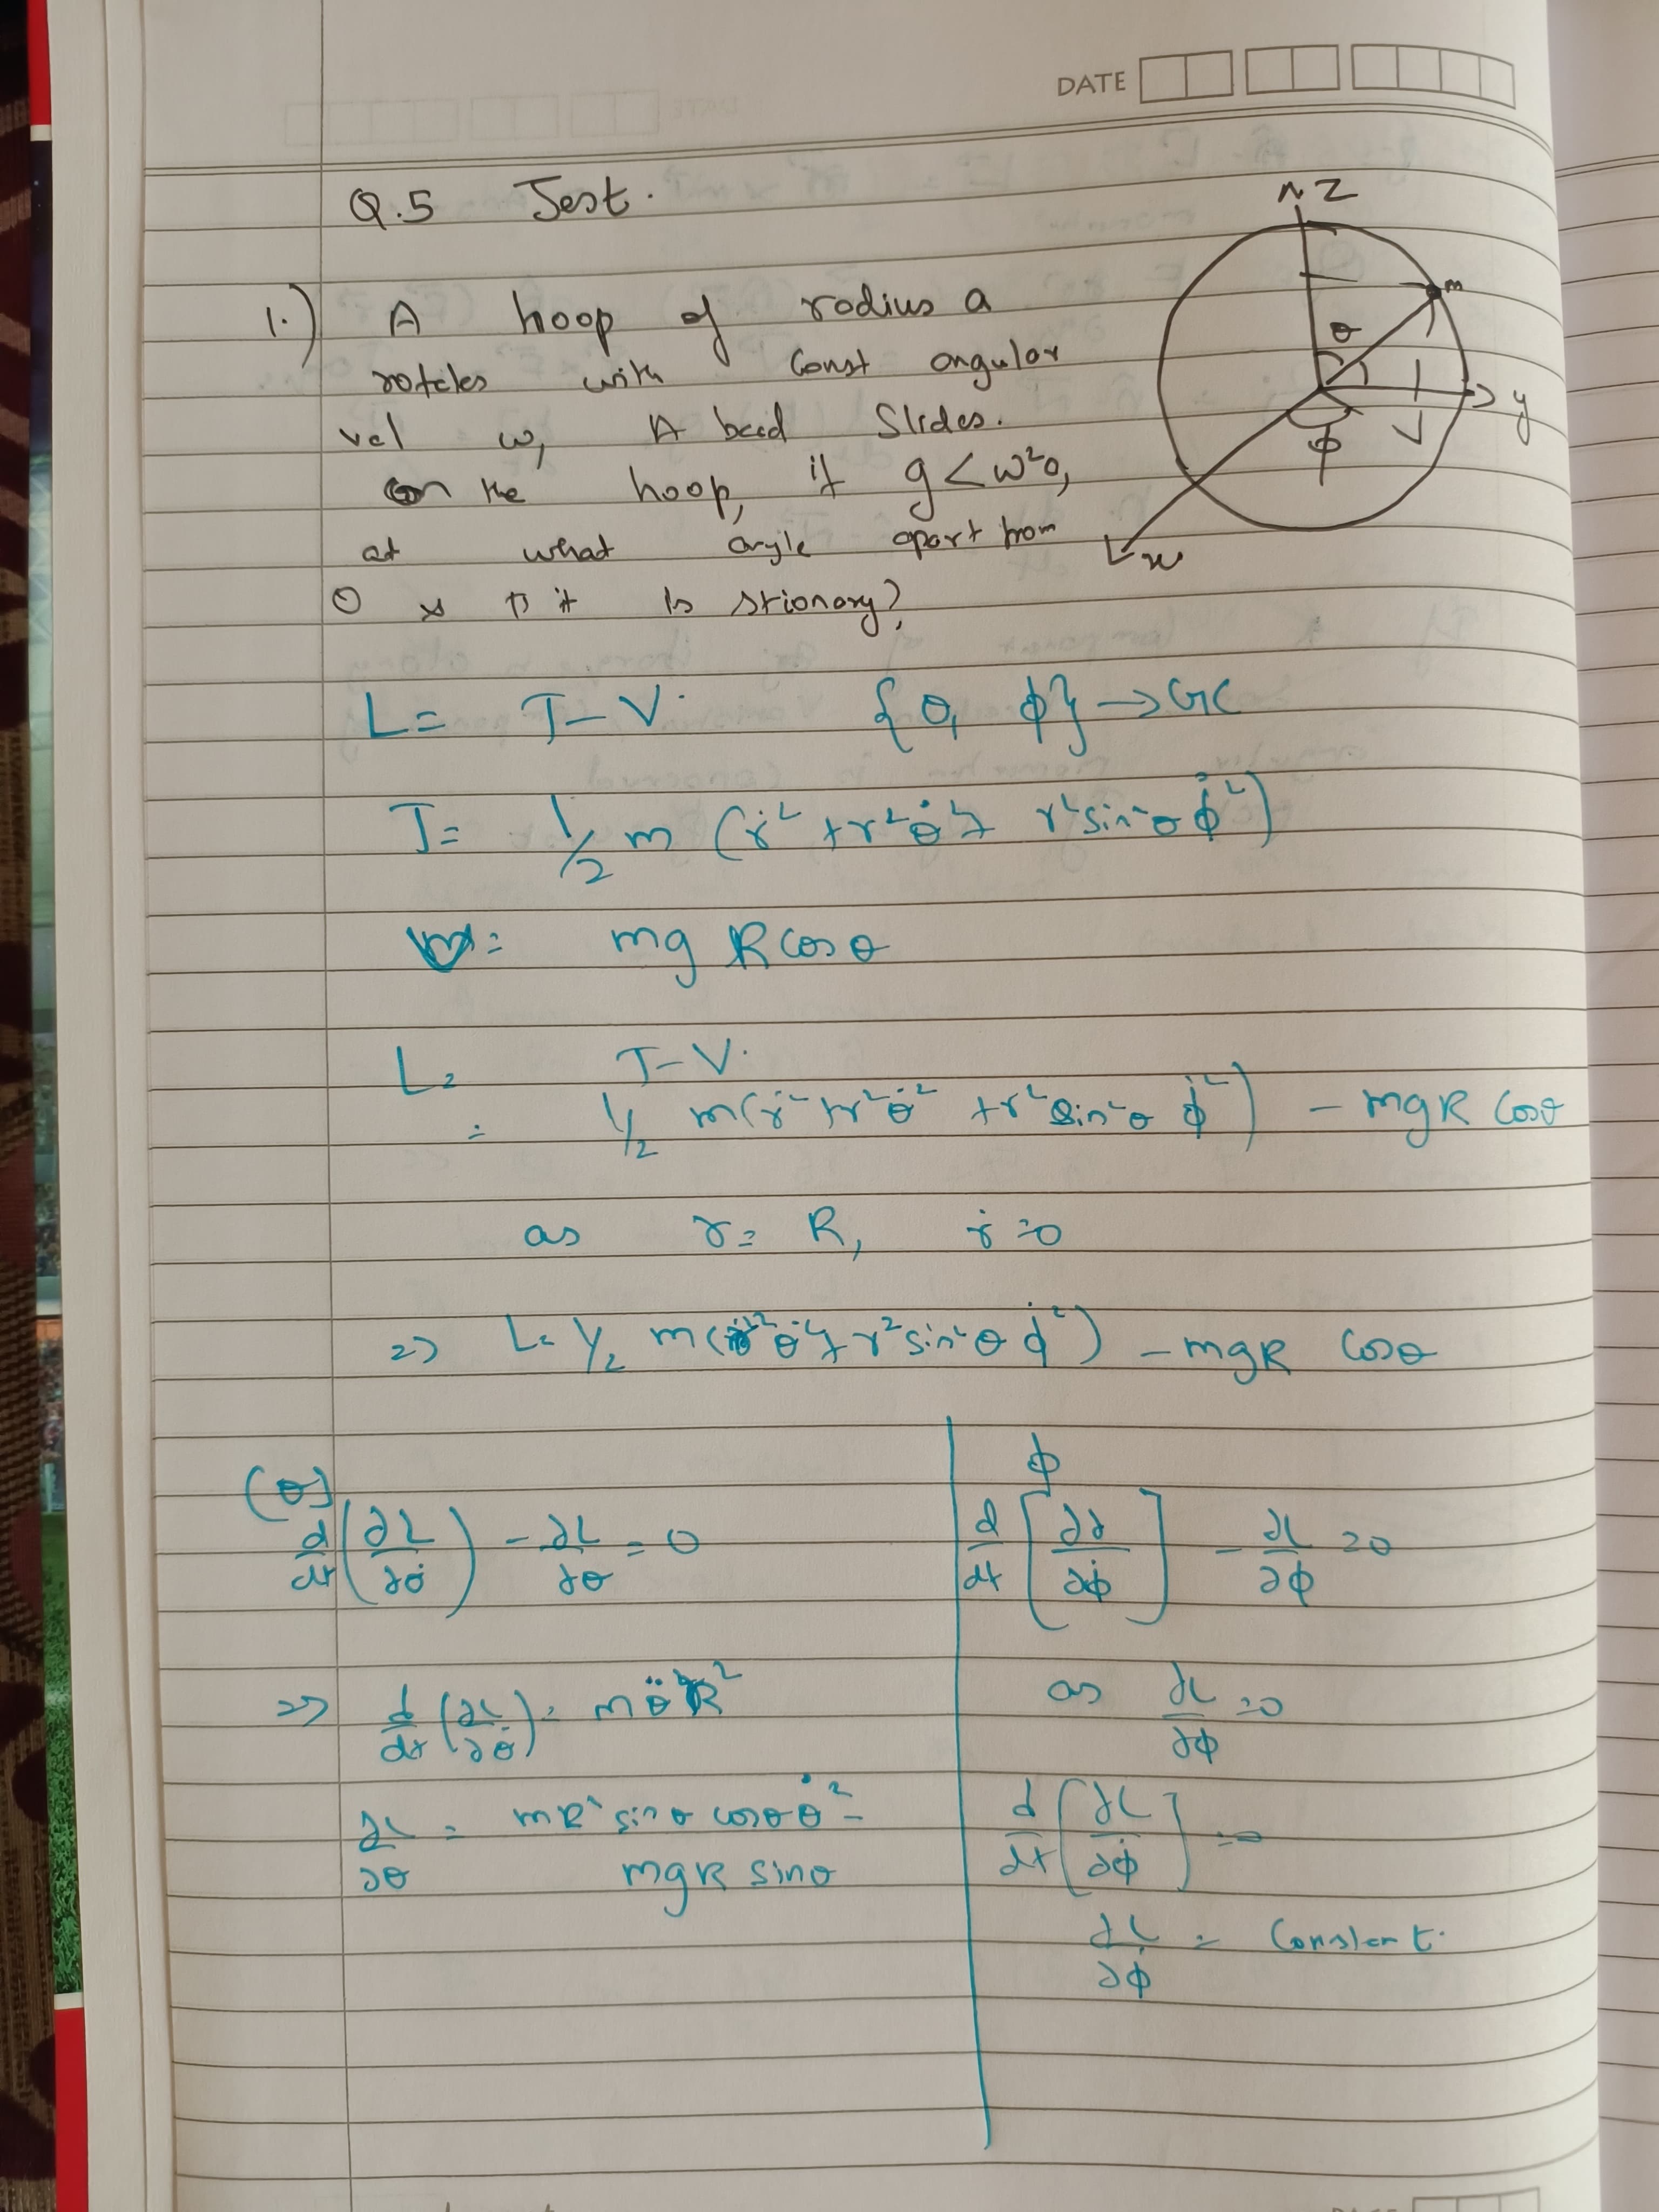 DATE
Q.5 Jest.
N Z
1.) A hoop of rodius a
m
rotates with const angular
θ
vel ω, A bead slides.
y
on the hoop, if g < ω²a,
ϕ
at what angle apart from
x
0 is it is stionary?
L = T – V. {θ, ϕ} → GC
T = 1/2 m (ṙ² + r²θ̇² + r² sin²θ ϕ̇²)
V = mg R cosθ
L = T – V.
= 1/2 m(ṙ² + r²θ̇² + r² sin²θ ϕ̇²) – mgR cosθ
as r = R, ṙ = 0
=> L = 1/2 m(r²θ̇² + r² sin²θ ϕ̇²) – mgR cosθ
(θ)
d/dt (∂L/∂θ̇) – ∂L/∂θ = 0
=> d/dt (∂L/∂θ̇) = mθ̈R²
∂L/∂θ = mR² sinθ cosθ θ̇² –
mgR sinθ
ϕ
d/dt [∂L/∂ϕ̇] – ∂L/∂ϕ = 0
as ∂L/∂ϕ = 0
d/dt [∂L/∂ϕ̇] = 0
∂L/∂ϕ̇ = Constant.